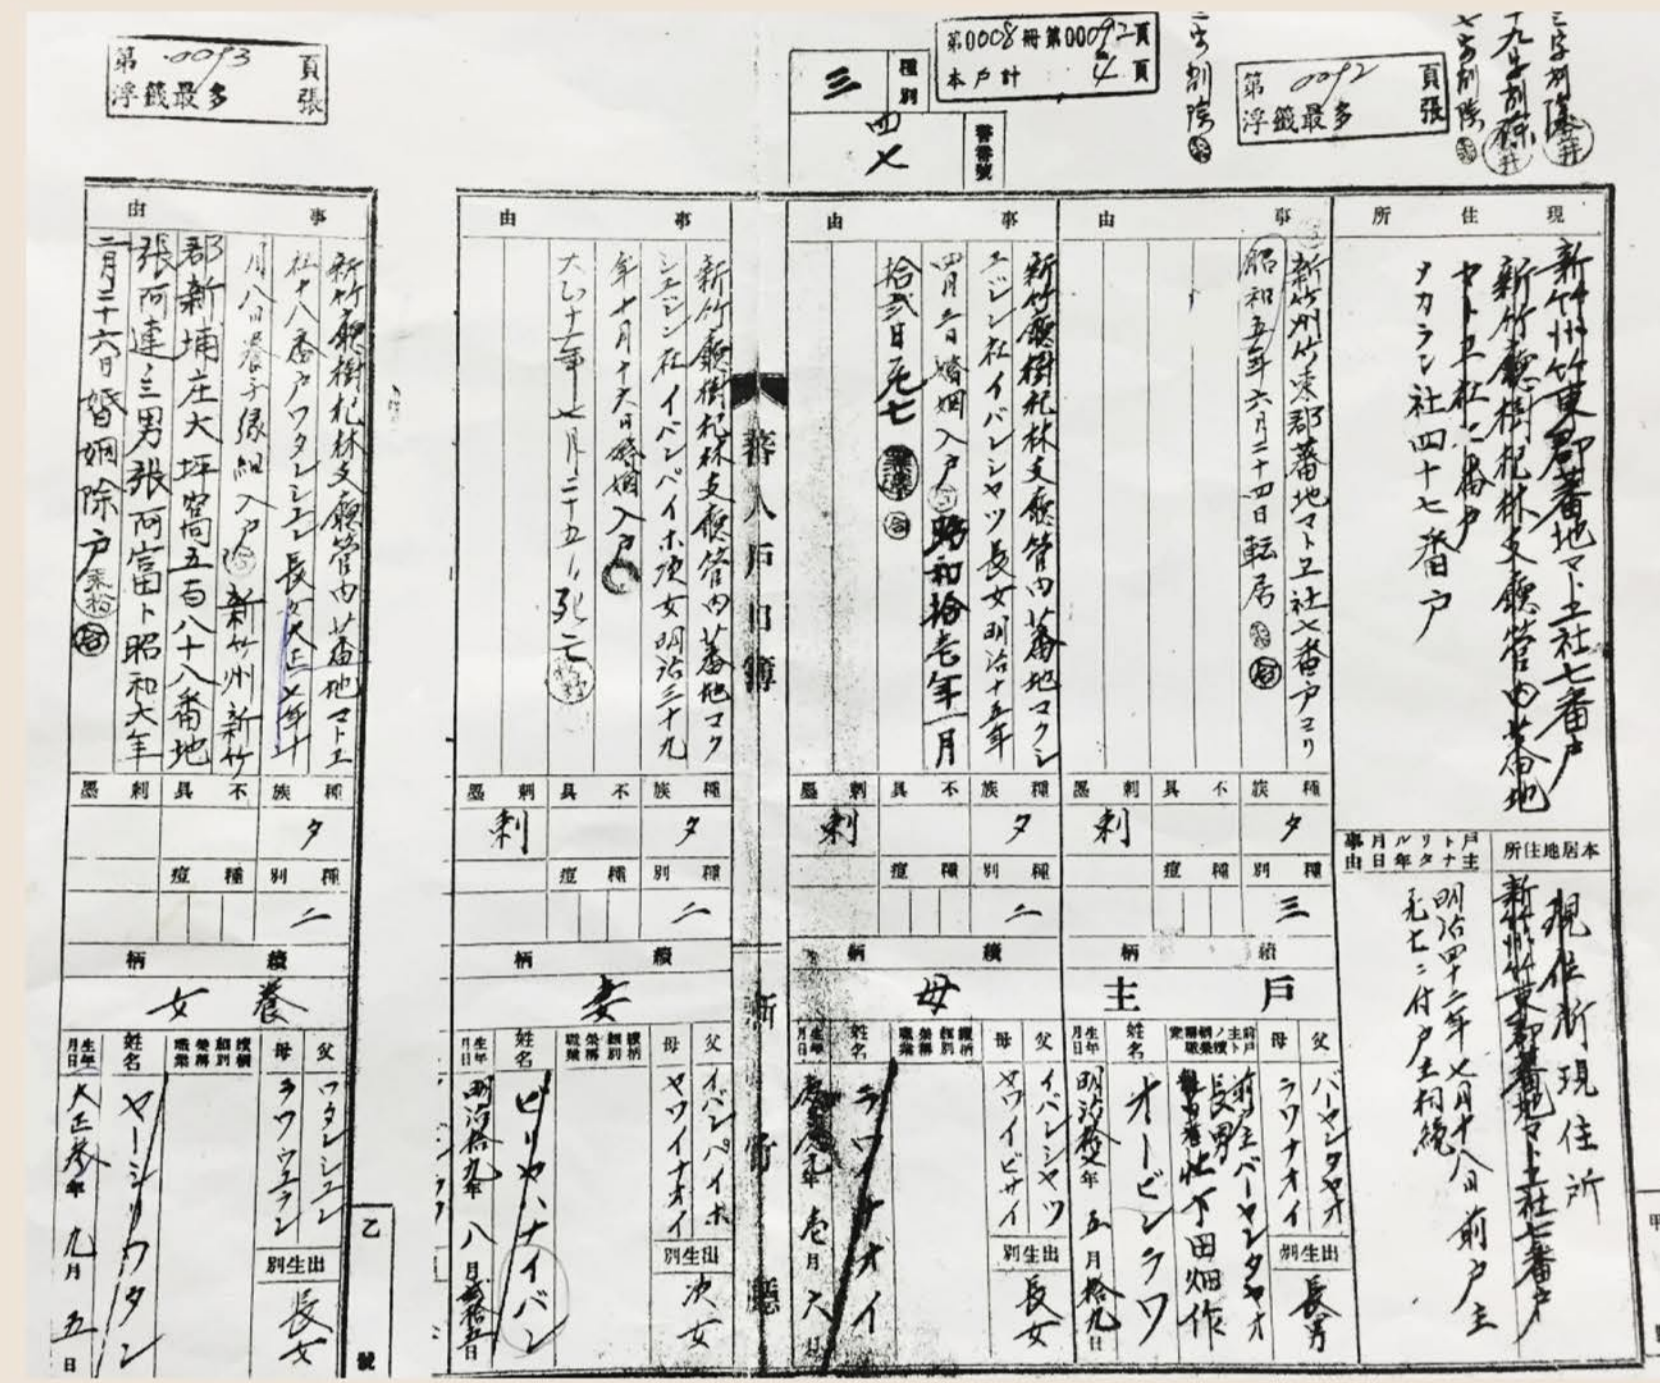 第0008冊第0092頁
本戶計 4 頁
第 0092 頁
浮籤最多 張
第 0093 頁
浮籤最多 張
種別
三
番號
四七
現住所
新竹州竹東郡蕃地マトエ社七番戶
新竹廳樹杞林支廳管內蕃地
マトエ社
ナカラン社四十七番戶
本居地住所
現住所
現住所
新竹州竹東郡蕃地マトエ社七番戶
戶主トナリタル年月日事由
明治四十二年七月十八日前戶主
死亡ニ付戶主相続
事由
新竹州竹東郡蕃地マトエ社七番戶ヨリ
昭和五年六月二十四日転居
種族
タ
不具
刺墨
刺
種別
三
種痘
續柄
戶主
父
バーヤンタヤオ
母
ラワナオイ
出生別
長男
前主バーヤンタヤオ
長男
田畑作
姓名
オービンラワ
生年月日
五月拾九日
事由
新竹廳樹杞林支廳管內蕃地マクシ
エジン社イバンシヤツ長女明治十五年
四月五日婚姻入戶 昭和拾壱年一月
拾弐日死亡
種族
タ
不具
刺墨
刺
種別
二
種痘
續柄
母
父
イバンシヤツ
母
ヤワイビサイ
出生別
長女
續柄細別榮稱職業
姓名
ラワイナオイ
生年月日
元年壱月六日
蕃人戶口簿
新竹廳
事由
新竹廳樹杞林支廳管內蕃地マク
シエジン社イバンベイホ次女明治三十九
年十月十六日婚姻入戶
大正十一年七月二十五日死亡
種族
タ
不具
刺墨
刺
種別
二
種痘
續柄
妻
父
イバンペイホ
母
ヤワイナオイ
出生別
次女
續柄細別榮稱職業
姓名
ビリヤハナイバン
生年月日
明治拾九年八月弐拾五日
事由
新竹廳樹杞林支廳管內蕃地マトエ
社十八番戶ワタンシエン長女大正七年十
月八日養子縁組入戶 新竹州新竹
郡新埔庄大坪窩五百八十八番地
張阿連三男張阿富ト昭和六年
二月二十六日婚姻除戶
種族
タ
不具
刺墨
種別
二
種痘
續柄
養女
父
ワタンシエン
母
ラワウエテン
出生別
長女
續柄細別榮稱職業
姓名
ヤーシリワタン
生年月日
大正参年九月五日
乙
號